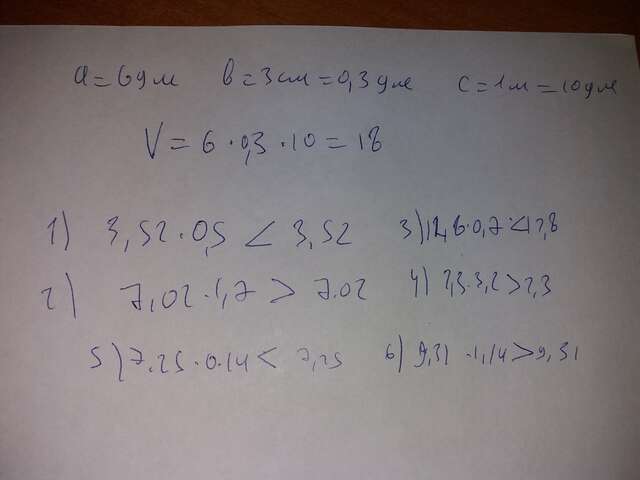 a=6дм в=3см=0,3дм с=1м=10дм
V=6·0,3·10=18
1) 3,52·0,5<3,52 3) 12,6·0,7<12,8
2) 7,02·1,7>7.02 4) 2,3·3,2>2,3
5) 7.25·0.14<7,25 6) 9,31·1,14>9,31